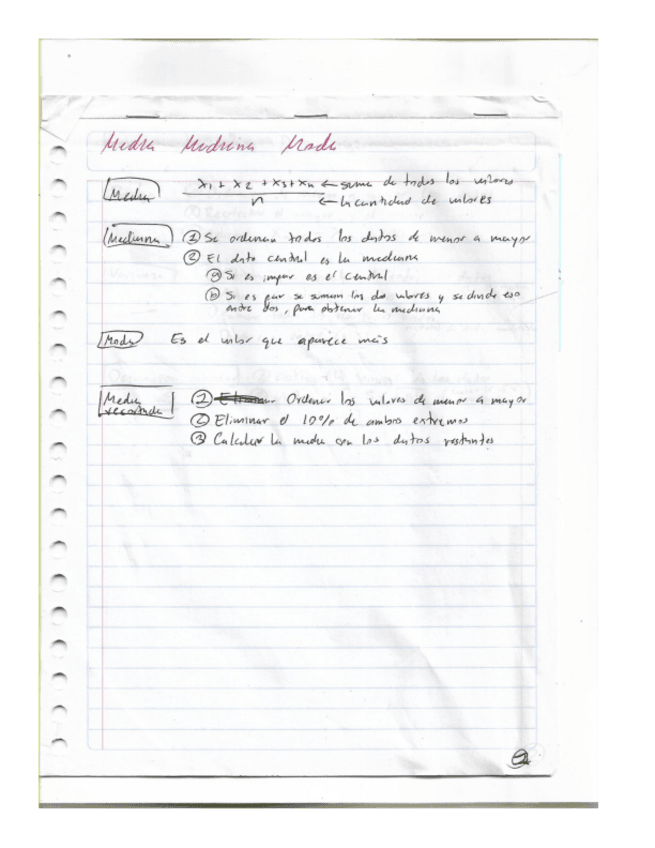 Media Mediana Moda
Media x1 + x2 + x3 + xn ← suma de todos los valores
n ← la cantidad de valores
Mediana ① Se ordenan todos los datos de menor a mayor
② El dato central es la mediana
ⓐ Si es impar es el central
ⓑ Si es par se suman los dos valores y se divide eso
entre dos, para obtener la mediana
Moda Es el valor que aparece más
Media recortada ① Ordenar los valores de menor a mayor
② Eliminar el 10% de ambos extremos
③ Calcular la media con los datos restantes